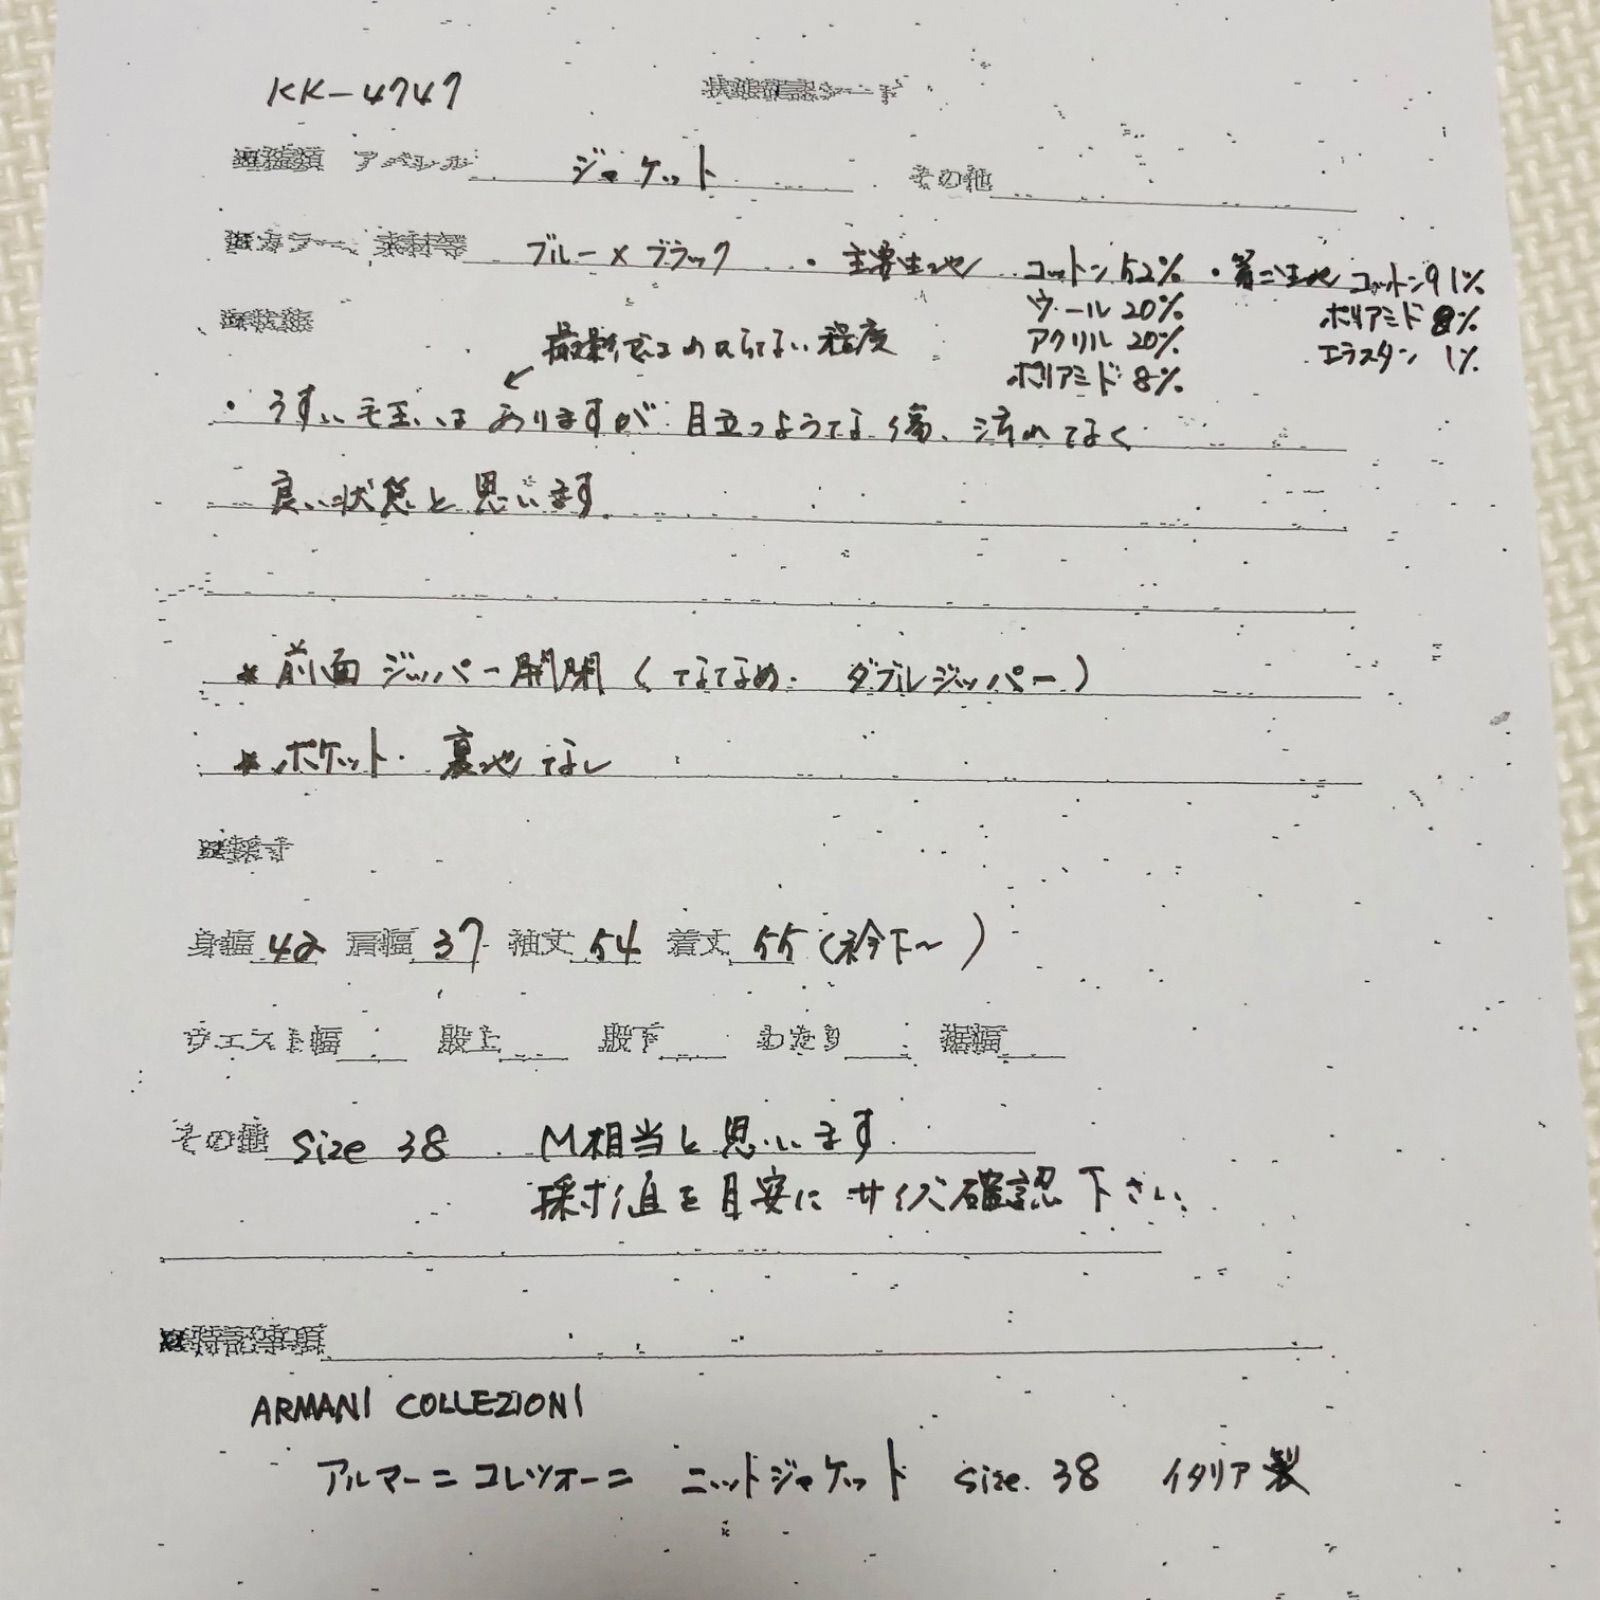 KK-4747 状態確認シート
アパレル ジャケット その他
カラー、素材等 ブルー×ブラック ・主要生地 コットン52% ・第二生地 コットン91%
ウール20% ポリアミド8%
アクリル20% エラスタン1%
ポリアミド8%
程度
・うすい毛玉はありますが目立つような傷、汚れなく
良い状態と思います
*前面ジッパー開閉(ななめ. ダブルジッパー)
*ポケット・裏地なし
採寸
身幅42 肩幅37 袖丈54 着丈55(衿下~)
ウエスト幅 股上 股下 わたり 裾幅
その他 size 38 M相当と思います
採寸値を目安にサイズ確認下さい
特記事項
ARMANI COLLEZIONI
アルマーニコレツォーニ ニットジャケット size.38 イタリア製